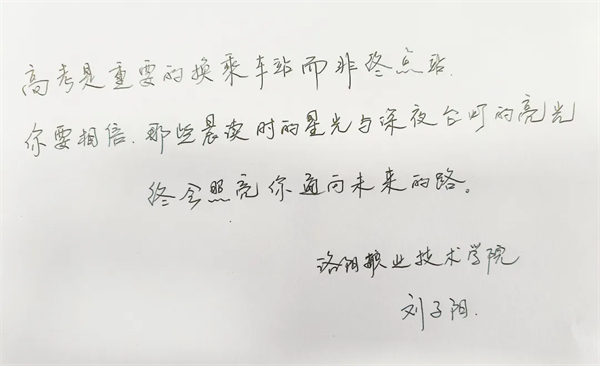 高考是重要的换乘车站而非终点站.
你要相信.那些晨读时的星光与深夜台灯的亮光
终会照亮你通向未来的路。
洛阳职业技术学院
刘子阳.